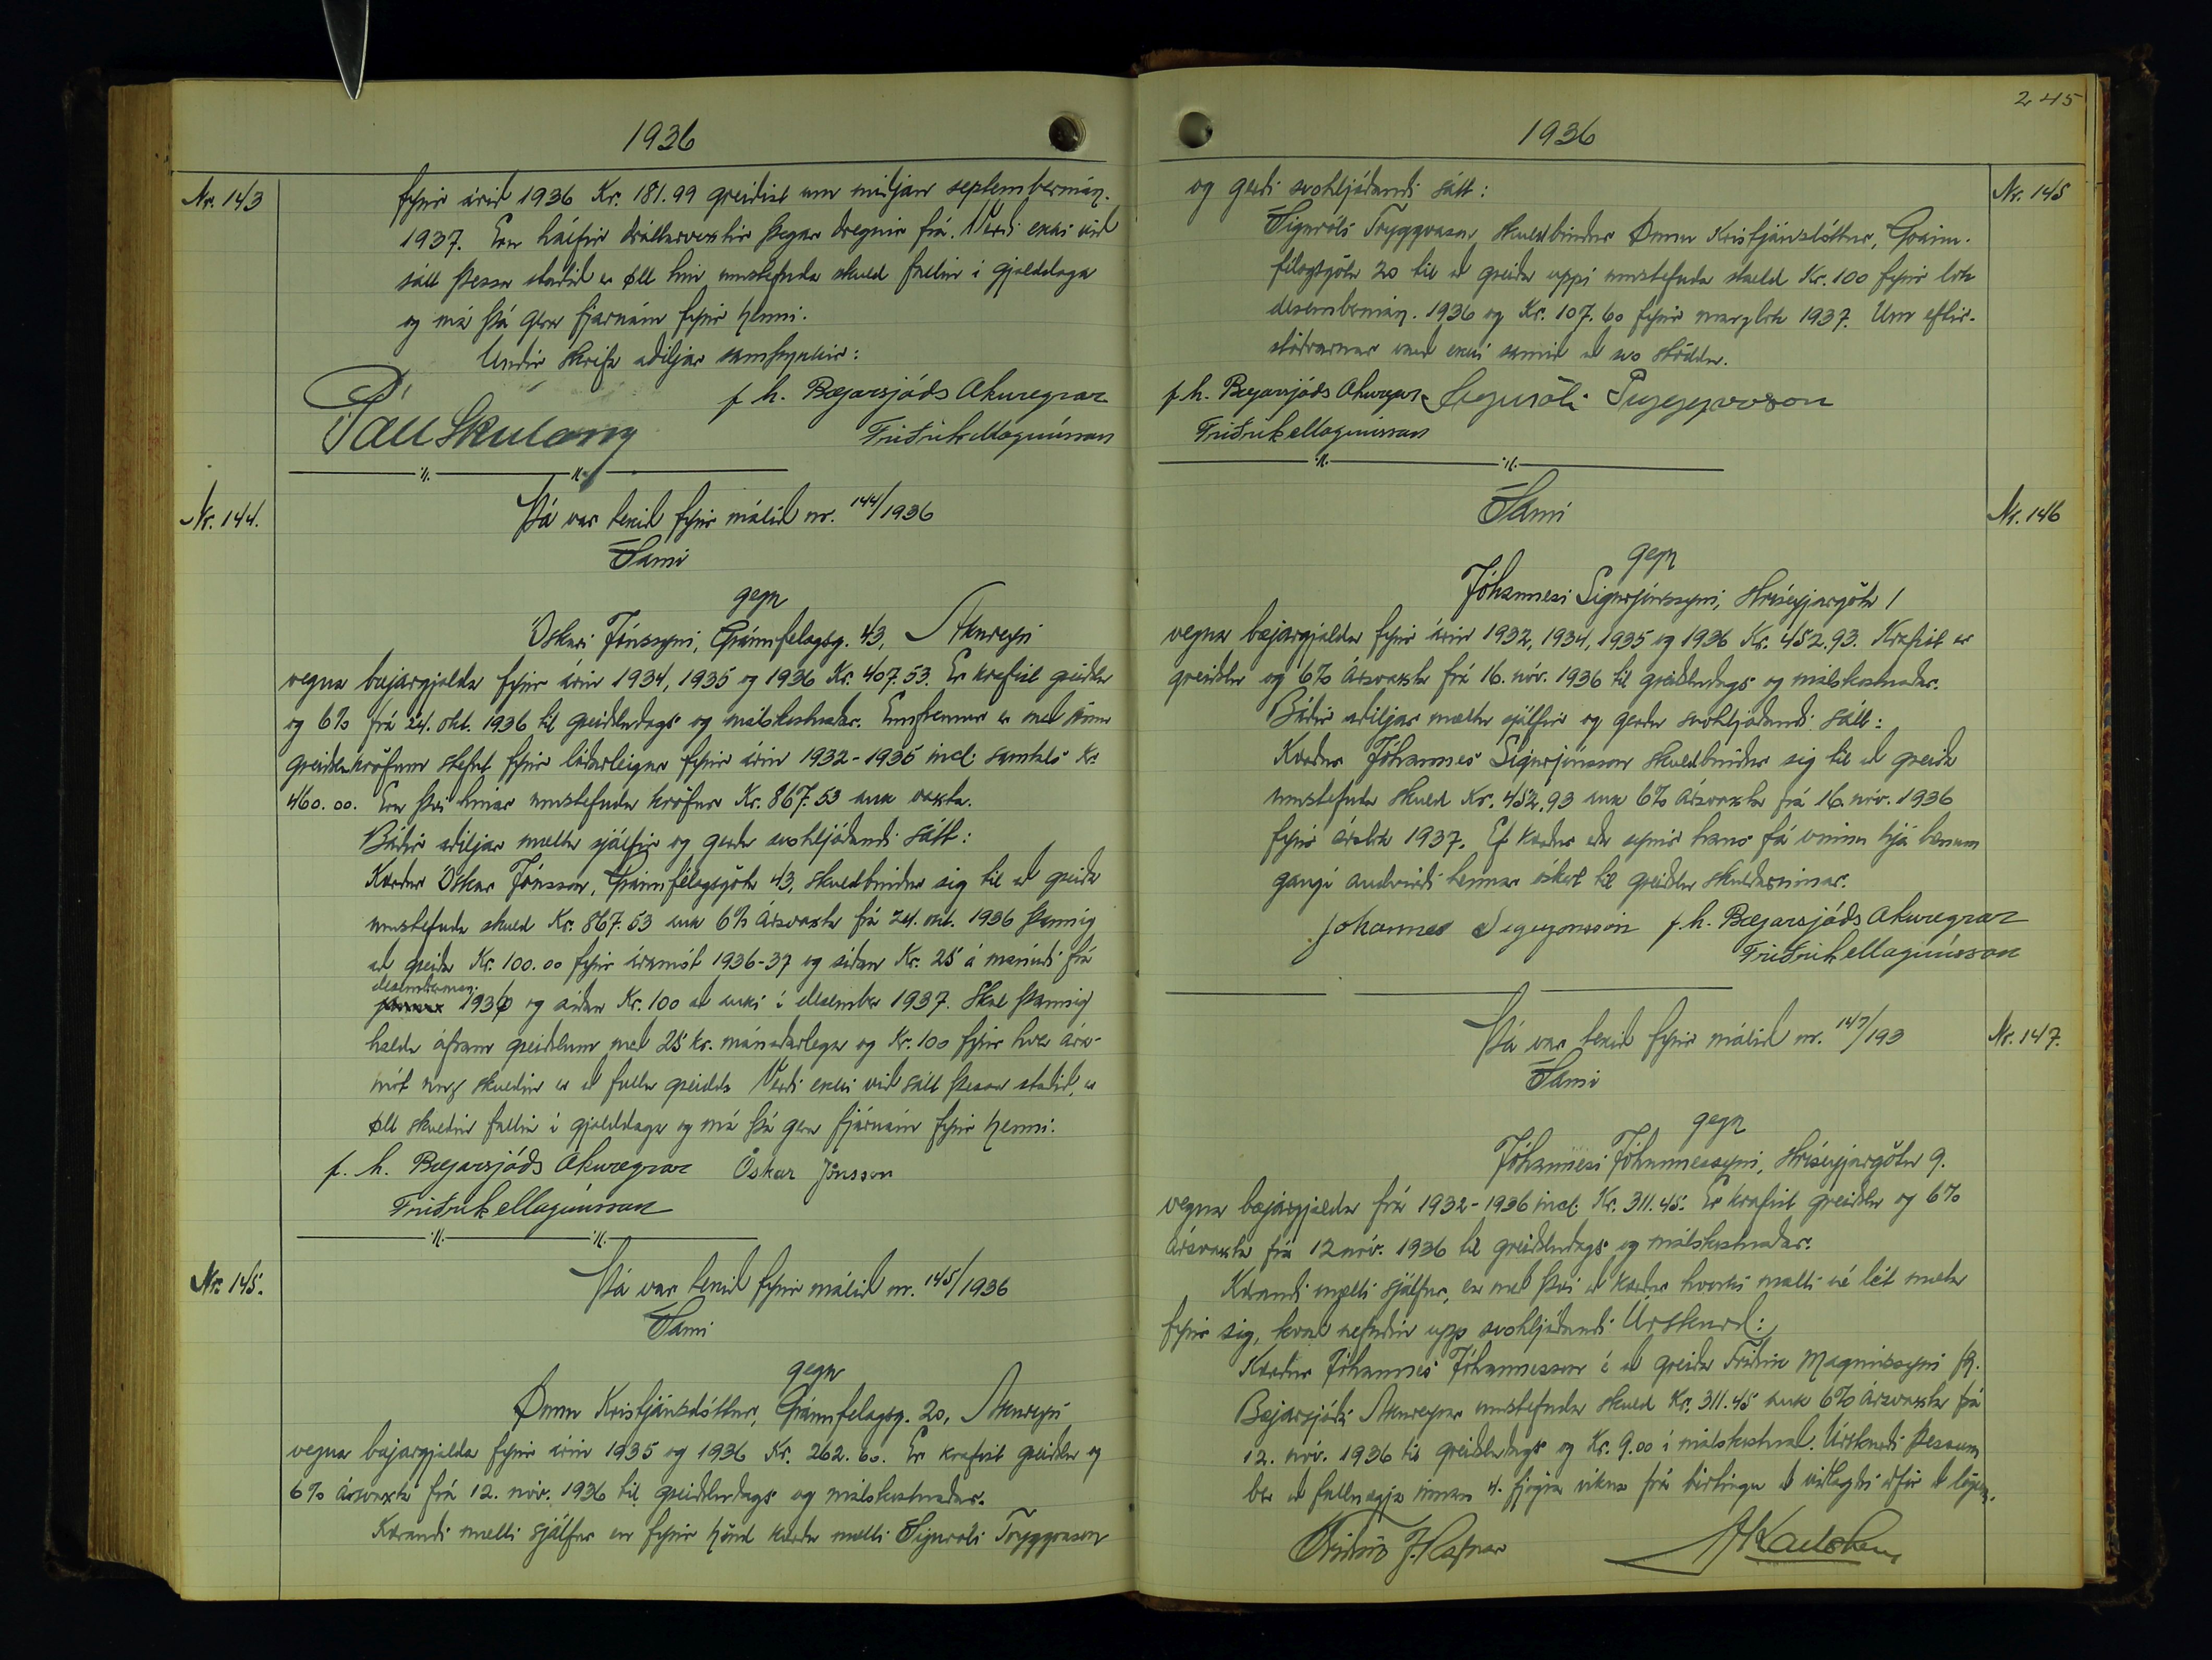 1936
Nr. 143
fyrir árið 1936 Kr. 181.99 greiðist um miðjan septembermán.
1937. Eru háifir dráttarvextir þegar dregnir frá. Verði ekki við
sátt þessa staðið er öll hin umstefnda skuld fallin í gjalddaga
og má þá gera fjárnám fyrir henni.
Undir skrifa aðiljar samþykkir:
f. h. Bæjarsjóðs Akureyrar
Páll Skúlason
Friðrik Magnússon
Nr. 144.
Þá var tekið fyrir málið nr. 144/1936
Sami
gegn
Óskari Jónssyni, Gránufelagsg. 43, Akureyri
vegna bæjargjalda fyrir árin 1934, 1935 og 1936 Kr. 407.53. Er krafist greiðslu
og 6% frá 24. okt. 1936 til greiðsludags og málskostnaðar. Ennfremur er með sömu
greiðslukröfum stefnt fyrir lóðarleigu fyrir árin 1932-1935 incl. samtals Kr.
460.00. Eru því hinar umstefndu kröfur Kr. 867.53 auk vaxta.
Báðir aðiljar mættu sjálfir og gerðu svohljóðandi sátt:
Kærður Óskar Jónsson, Gránufélagsgötu 43, skuldbindur sig til að greiða
umstefnda skuld Kr. 867.53 auk 6% ársvaxta frá 24. okt. 1936 þannig
að greiða Kr. 100.00 fyrir áramót 1936-37 og síðan Kr. 25 á mánuði frá
desembermán.
janúar 1936 og síðan Kr. 100 að auki í desember 1937. Skal þannig
halda áfram greiðslum með 25 kr. mánaðarlega og Kr. 100 fyrir hver ára-
mót unz skuldin er að fullu greidd. Verði ekki við sátt þessa staðið, er
öll skuldin fallin í gjalddaga og má þá gera fjárnám fyrir henni.
f. h. Bæjarsjóðs Akureyrar Óskar Jónsson
Friðrik Magnússon
Nr. 145.
Þá var tekið fyrir málið nr. 145/1936
Sami
gegn
Önnu Kristjánsdóttur, Gránufelagsg. 20, Akureyri
vegna bæjargjalda fyrir árin 1935 og 1936 Kr. 262.60. Er krafist greiðslu og
6% ársvaxta frá 12. nóv. 1936 til greiðsludags og málskostnaðar.
Kærandi mætti sjálfur en fyrir hönd kærðu mætti Siguróli Tryggvason
245
1936
Nr. 145
og gerði svohljóðandi sátt:
Siguróli Tryggvason skuldbindur Önnu Kristjánsdóttur, Gránu-
félagsgötu 20 til að greiða uppí umstefnda skuld Kr. 100 fyrir lok
desembermán. 1936 og Kr. 107.60 fyrir marzlok 1937. Um eftir-
stöðvarnar varð ekki samið að svo stöddu.
f. h. Bæjarsjóðs Akureyrar Siguróli Tryggvason
Friðrik Magnússon
Nr. 146
Sami
gegn
Jóhannesi Sigurjónssyni, Hríseyjargötu 1
vegna bæjargjalda fyrir árin 1932, 1934, 1935 og 1936 Kr. 452.93. Krafist er
greiðslu og 6% ársvaxta frá 16. nóv. 1936 til greiðsludags og málskostnaðar.
Báðir aðiljar mættu sjálfir og gerðu svohljóðandi sátt:
Kærður Jóhannes Sigurjónsson skuldbindur sig til að greiða
umstefnda skuld Kr. 452.93 auk 6% ársvaxta frá 16. nóv. 1936
fyrir árslok 1937. Ef kærður eða synir hans fá vinnu hjá bænum
gangi andvirði hennar óskert til greiðslu skuldarinnar.
Jóhannes Sigurjónsson f. h. Bæjarsjóðs Akureyrar
Friðrik Magnússon
Nr. 147.
Þá var tekið fyrir málið nr. 147/193
Sami
gegn
Jóhannesi Jóhannessyni, Hríseyjargötu 9.
vegna bæjargjalda frá 1932-1936 incl. Kr. 311.45. Er krafist greiðslu og 6%
ársvaxta frá 12 nóv. 1936 til greiðsludags og málskostnaðar.
Kærandi mætti sjálfur, en með því að kærður hvorki mætti né lét mæta
fyrir sig, kvað nefndin upp svohljóðandi Úrskurð:
Kærður Jóhannes Jóhannesson á að greiða Friðrik Magnússyni fh.
Bæjarsjóðs Akureyrar umstefnda skuld Kr. 311.45 auk 6% ársvaxta frá
12. nóv. 1936 til greiðsludags og Kr. 9.00 í málskostnað. Úrskurði þessum
ber að fullnægja innan 4. fjögra vikna frá birtingu að viðlagðri aðför að lögum.
Friðrik J. Rafnar